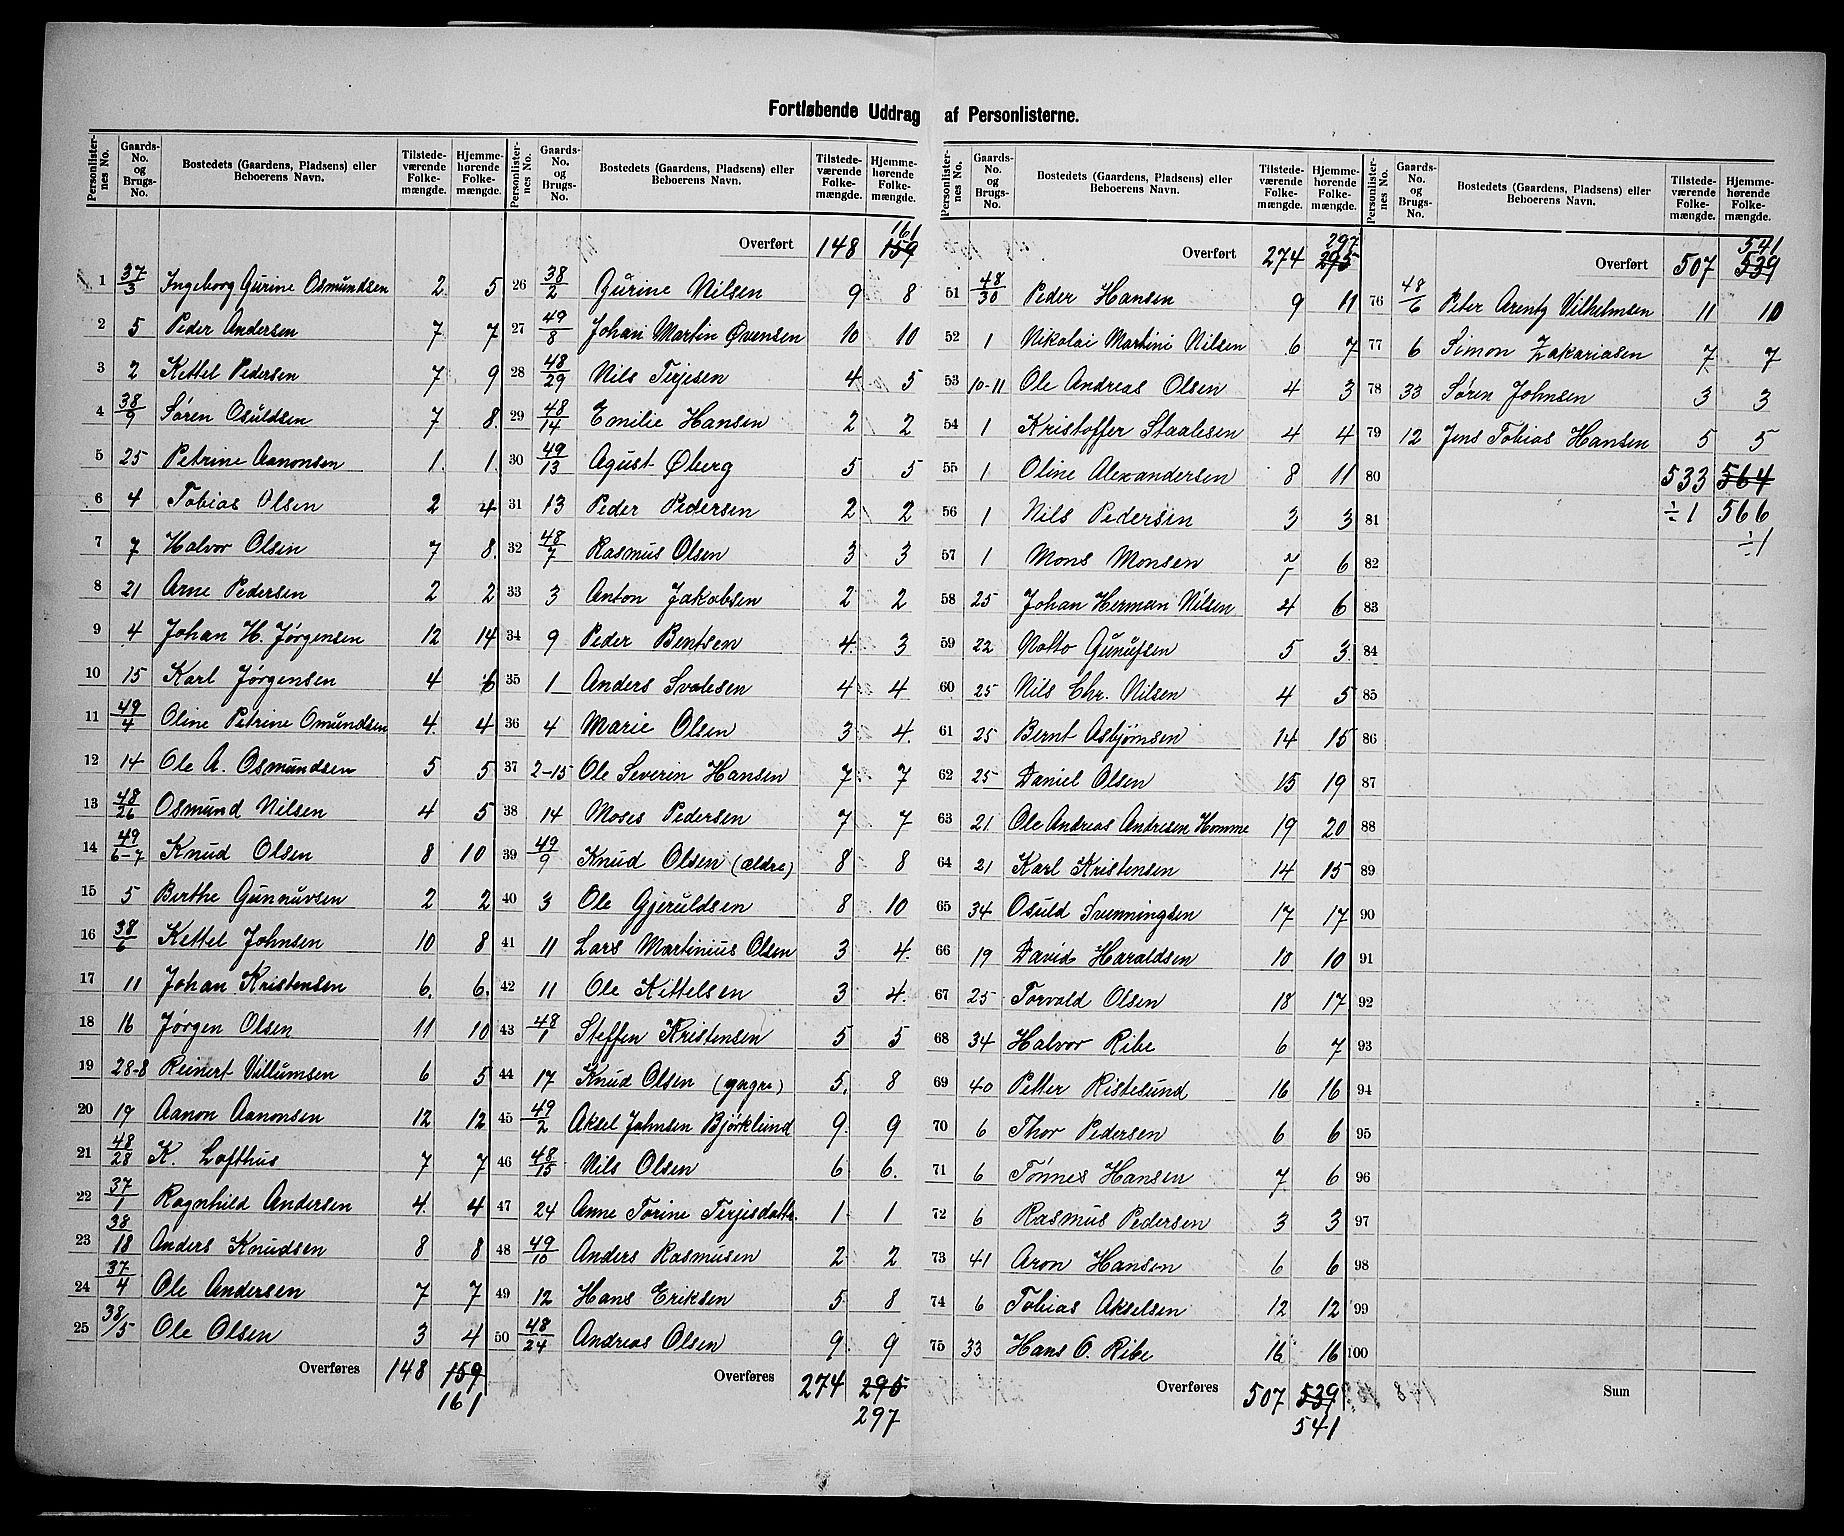 Fortløbende Uddrag af Personlisterne.
Personlister-nes No. Gaards-No. og Brugs-No. Bostedets (Gaardens, Pladsens) eller Beboerens Navn. Tilstede-værende Folke-mængde. Hjemme-hørende Folke-mængde.
1 37/3 Ingeborg Gurine Osmundsen 2 5
2 5 Peder Andersen 7 7
3 2 Kettel Pedersen 7 9
4 38/9 Søren Osuldsen 7 8
5 25 Petrine Aanonsen 1 1
6 4 Tobias Olsen 2 4
7 7 Halvor Olsen 7 8
8 21 Arne Pedersen 2 2
9 4 Johan H. Jørgensen 12 14
10 15 Karl Jørgensen 4 6
11 49/4 Oline Petrine Omundsen 4 4
12 14 Ole A. Osmundsen 5 5
13 48/26 Osmund Nilsen 4 5
14 49/6-7 Knud Olsen 8 10
15 5 Berthe Gunnuvsen 2 2
16 38/6 Kettel Johnsen 10 8
17 11 Johan Kristensen 6 6
18 16 Jørgen Olsen 11 10
19 28-8 Reinert Villumsen 6 5
20 19 Aanon Aanonsen 12 12
21 48/28 K. Lofthus 7 7
22 37/1 Ragnhild Andersen 4 4
23 38/18 Anders Knudsen 8 8
24 37/4 Ole Andersen 7 7
25 38/5 Ole Olsen 3 4
Overføres 148 159
161
Personlister-nes No. Gaards-No. og Brugs-No. Bostedets (Gaardens, Pladsens) eller Beboerens Navn. Tilstede-værende Folke-mængde. Hjemme-hørende Folke-mængde.
161
Overført 148 159
26 38/2 Gurine Nilsen 9 8
27 49/8 Johan Martin Øvensen 10 10
28 48/29 Nils Terjesen 4 5
29 48/14 Emilie Hansen 2 2
30 49/13 Agust Øberg 5 5
31 13 Peder Pedersen 2 2
32 48/7 Rasmus Olsen 3 3
33 3 Anton Jakobsen 2 2
34 9 Peder Bentsen 4 3
35 1 Anders Svalesen 4 4
36 4 Marie Olsen 3 4
37 2-15 Ole Severin Hansen 7 7
38 14 Moses Pedersen 7 7
39 49/9 Knud Olsen (ældre) 8 8
40 3 Ole Gjeruldsen 8 10
41 11 Lars Martinius Olsen 3 4
42 11 Ole Kittelsen 3 4
43 48/1 Steffen Kristensen 5 5
44 17 Knud Olsen (yngre) 5 8
45 49/2 Aksel Johnsen Bjørklund 9 9
46 48/15 Nils Olsen 6 6
47 24 Anne Torine Terjisdatt. 1 1
48 49/10 Anders Rasmusen 2 2
49 12 Hans Eriksen 5 8
50 48/24 Andreas Olsen 9 9
Overføres 274 295
297
Personlister-nes No. Gaards-No. og Brugs-No. Bostedets (Gaardens, Pladsens) eller Beboerens Navn. Tilstede-værende Folke-mængde. Hjemme-hørende Folke-mængde.
297
Overført 274 295
51 48/30 Peder Hansen 9 11
52 1 Nikolai Martini Nilsen 6 7
53 10-11 Ole Andreas Olsen 4 3
54 1 Kristoffer Staalesen 4 4
55 1 Oline Alexandersen 8 11
56 1 Nils Pedersen 3 3
57 1 Mons Monsen 6
58 25 Johan Herman Nilsen 4 6
59 22 Notto Gunufsen 5 3
60 25 Nils Chr. Nilsen 4 5
61 25 Bernt Asbjørnsen 14 15
62 25 Daniel Olsen 15 19
63 21 Ole Andreas Andresen Homme 19 20
64 21 Karl Kristensen 14 15
65 34 Osuld Svenningsen 17 17
66 19 David Haraldsen 10 10
67 25 Torvald Olsen 18 17
68 34 Halvor Ribe 6 7
69 40 Petter Ristesund 16 16
70 6 Thor Pedersen 6 6
71 6 Tønnes Hansen 7 6
72 6 Rasmus Pedersen 3 3
73 41 Aron Hansen 6 6
74 6 Tobias Akselsen 12 12
75 33 Hans O. Ribe 16 16
Overføres 507 539
541
Personlister-nes No. Gaards-No. og Brugs-No. Bostedets (Gaardens, Pladsens) eller Beboerens Navn. Tilstede-værende Folke-mængde. Hjemme-hørende Folke-mængde.
541
Overført 507 539
76 48/6 Peter Arentz Vilhelmsen 11 10
77 6 Simon Zakariasen 7 7
78 33 Søren Johnsen 3 3
79 12 Jens Tobias Hansen 5 5
80 533 564
81 ÷1 566
÷1
82
83
84
85
86
87
88
89
90
91
92
93
94
95
96
97
98
99
100
Sum